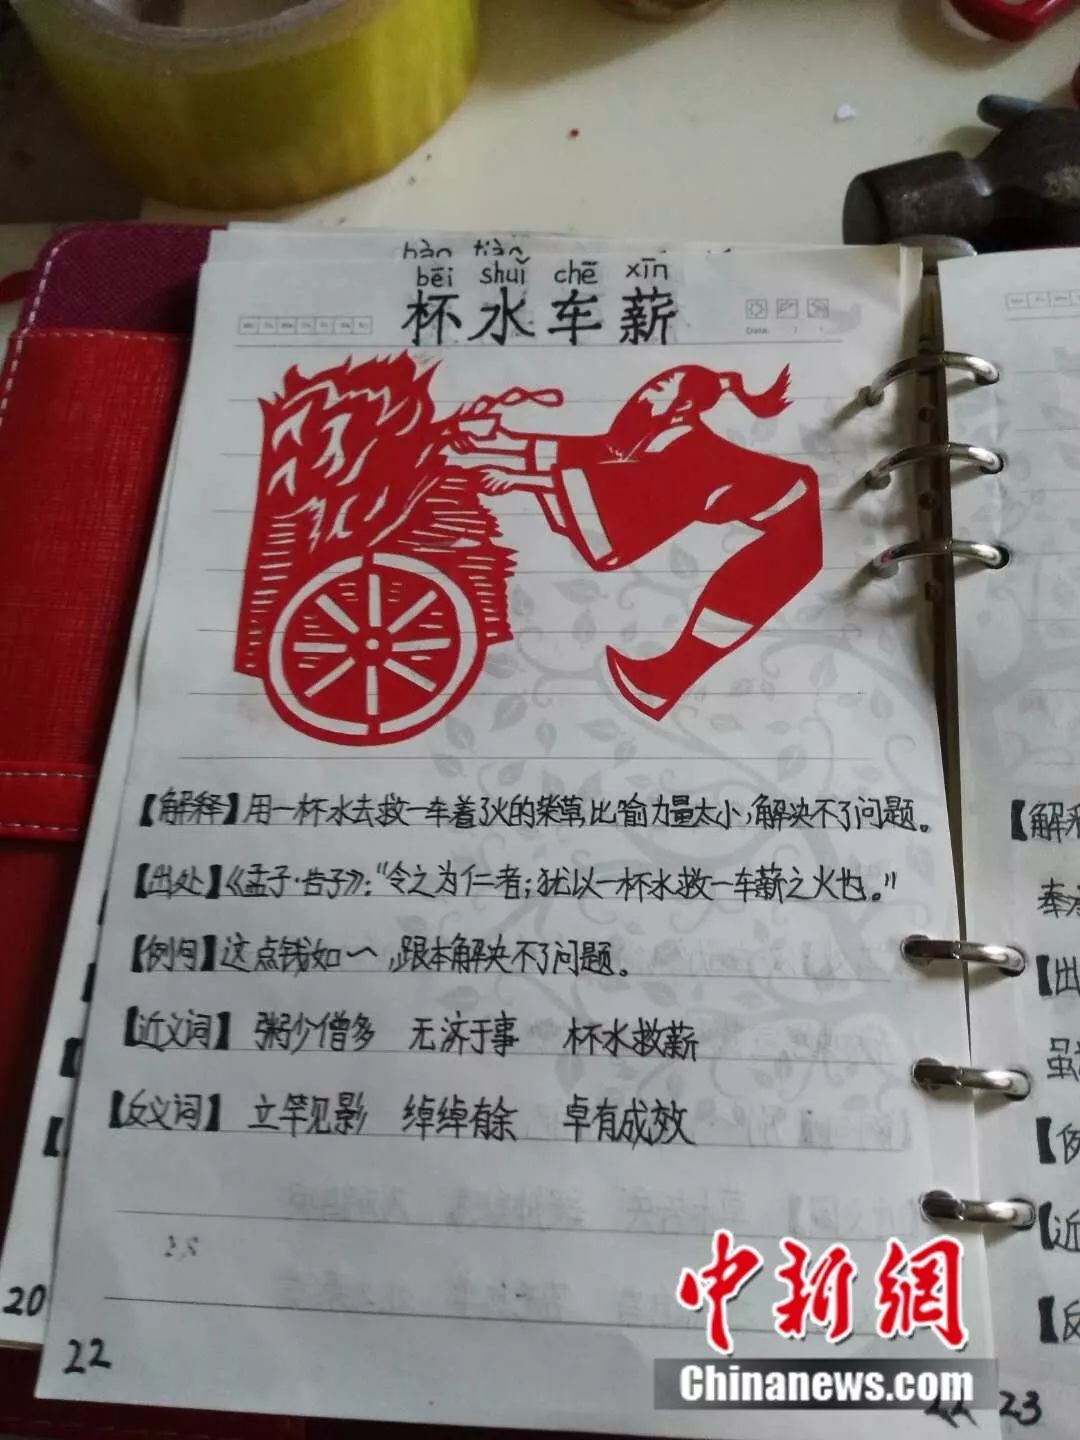 bēi shuǐ chē xīn
杯水车薪
【解释】用一杯水去救一车着了火的柴草,比喻力量太小,解决不了问题。
【出处】《孟子·告子》:“令之为仁者;犹以一杯水救一车薪之火也。”
【例句】这点钱如~,跟本解决不了问题。
【近义词】 粥少僧多 无济于事 杯水救薪
【反义词】 立竿见影 绰绰有余 卓有成效
20
22
【解释
【出
【例
【近
【反
23
中新網
Chinanews.com